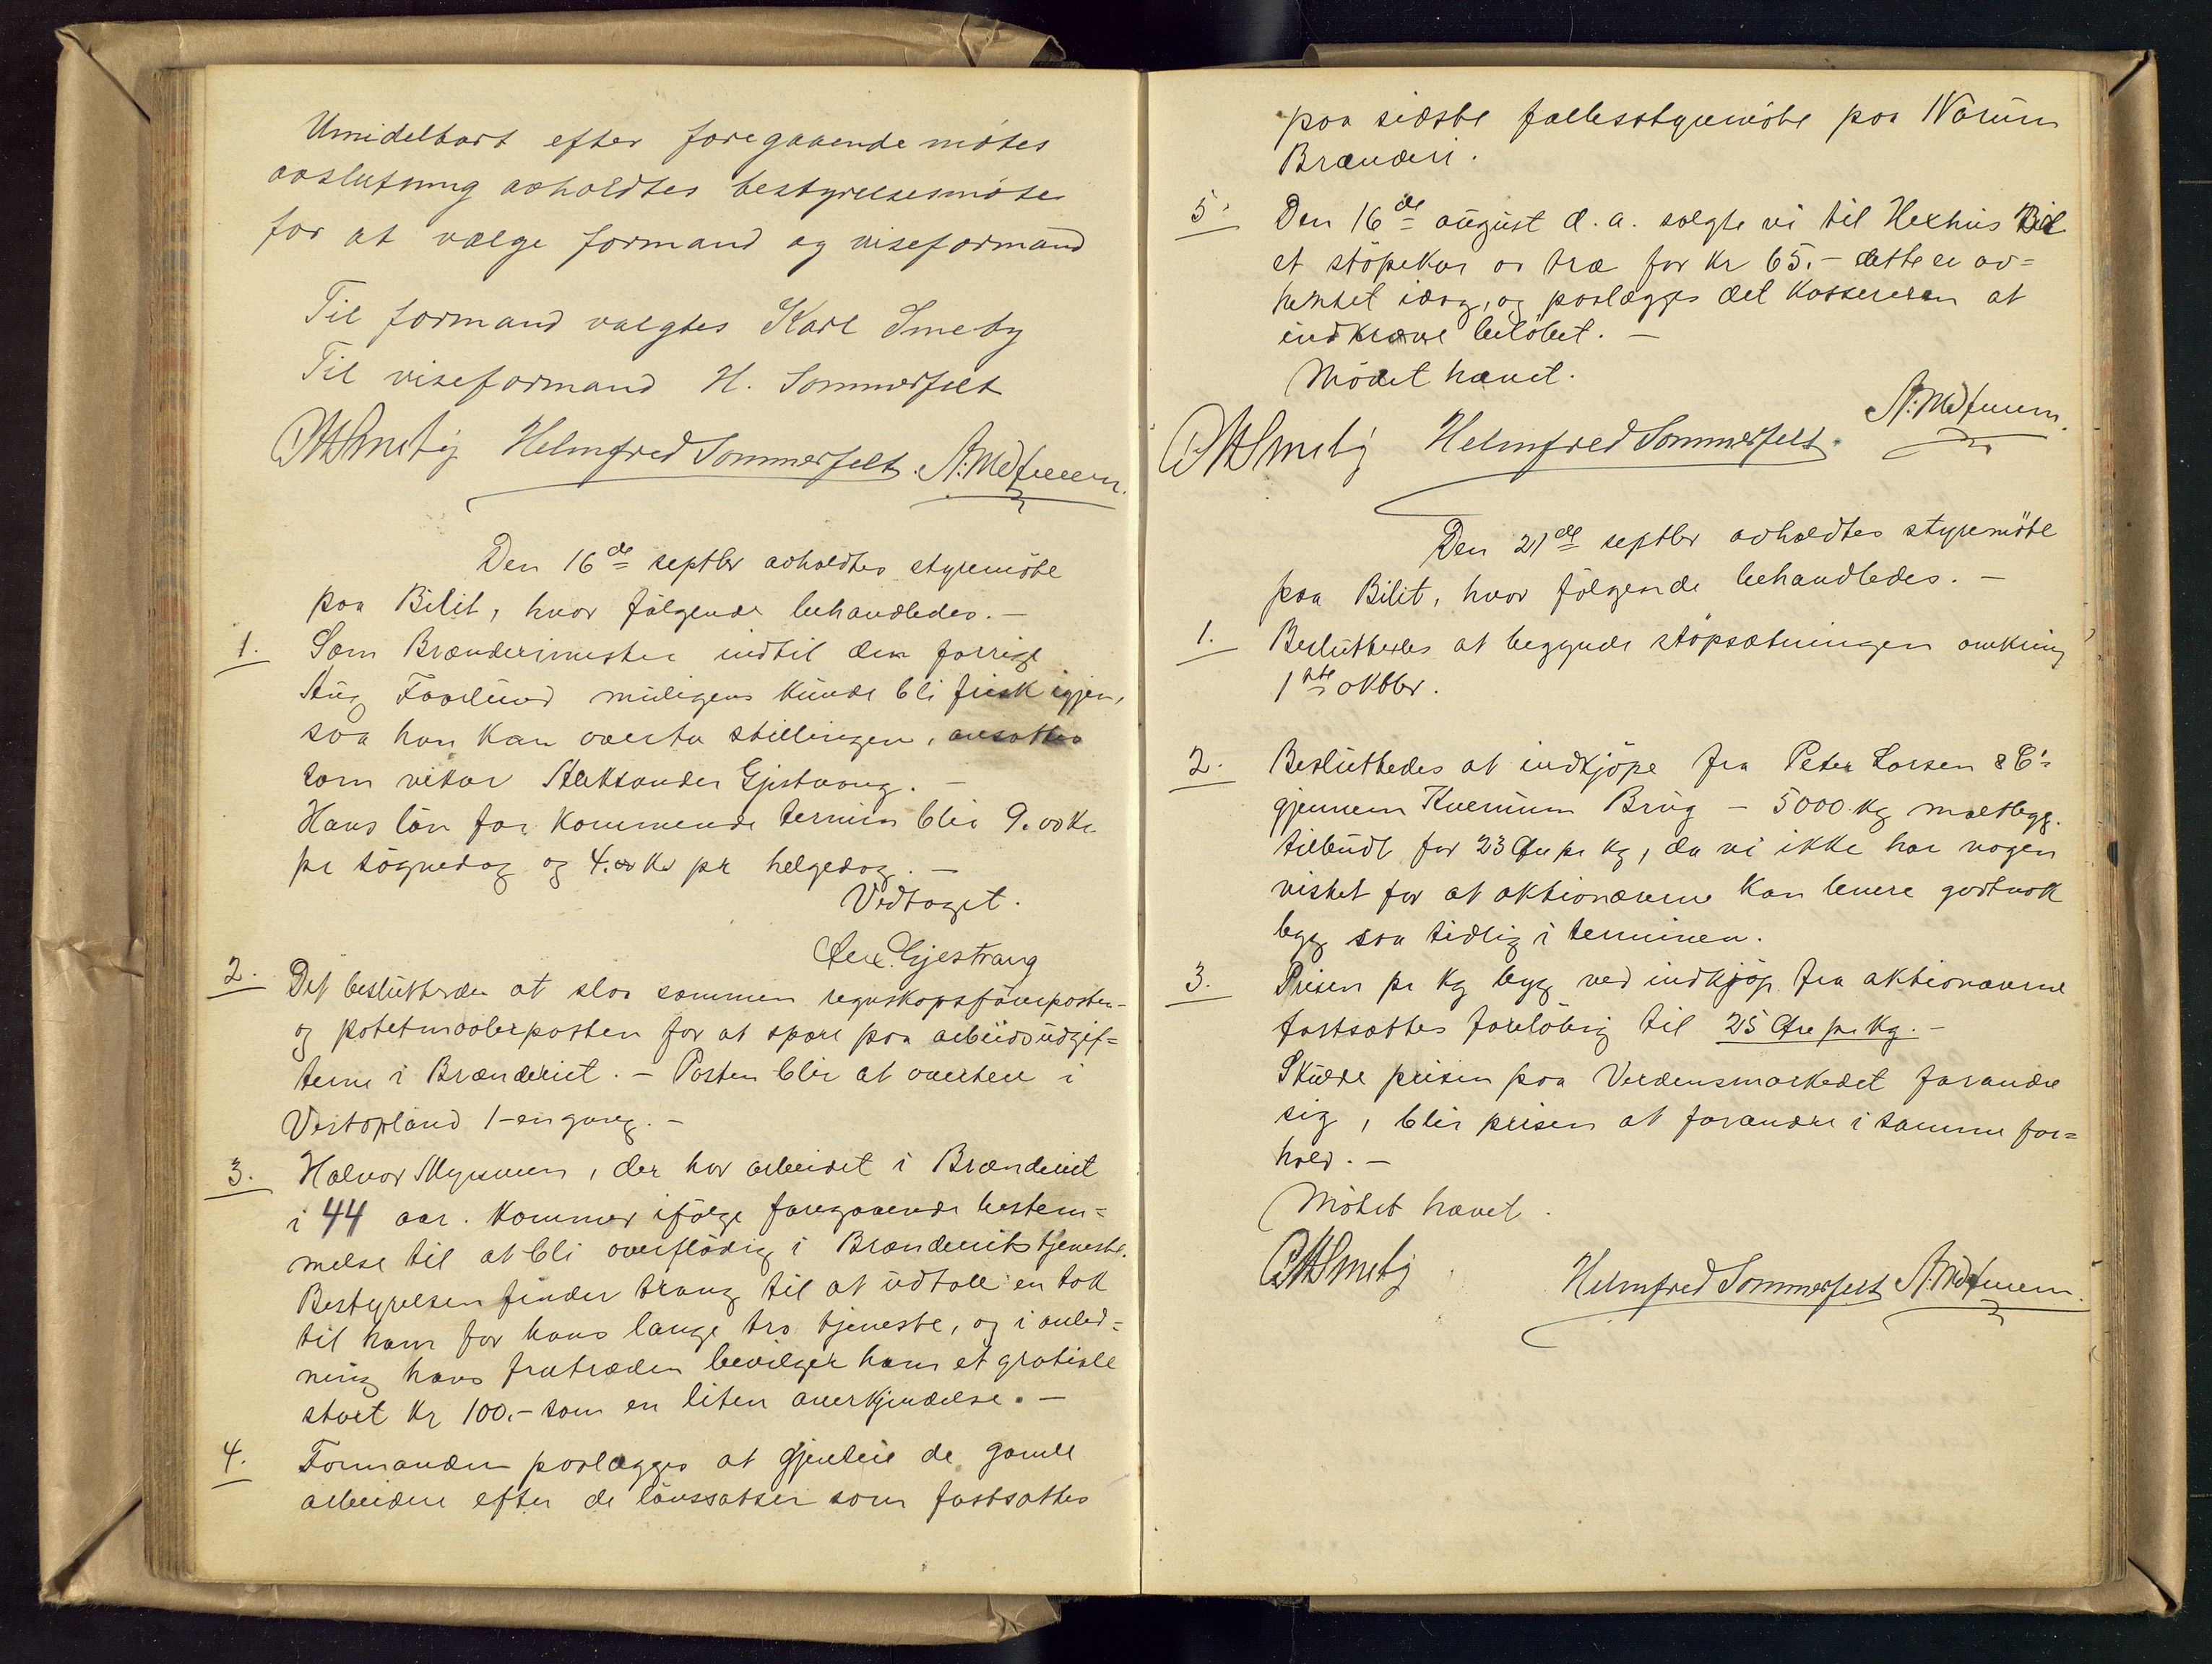 Umidelbart efter foregaaende møtes
avslutning avholdtes bestyrelsesmøte
for at vælge formand og viseformand
Til formand valgtes Karl Smeby
Til viseformand H. Sommerfelt
Helmfred Sommerfelt.
Den 16de septbr avholdtes styremöte
paa Bilit, hvor fölgende behandledes. –
1. Som Brænderimester indtil den forrige
Aug muligens kunde bli frisk igjen,
saa han kan overta stillingen, ansattes
som vikar Aleksander Gjestvang. –
Hans lön for kommende termin blir 9.00 Kr.
pr sögnedag og 4.00 Kr pr helgedag. –
Vedtaget.
Alex. Gjestvang
2. Det besluttedes at slaa sammen regnskapsförerposten-
og potetmaalerposten for at spare paa arbeidsudgif=
terne i Brænderiet. – Posten blir at avertere i
Vestopland 1-en gang. –
3. Halvor, der har arbeidet i Brænderiet
i 44 aar. kommer ifölge foregaaende bestem=
melse til at bli overflödig i Brænderiets tjeneste.
Bestyrelsen finder trang til at udtale en tak
til ham for hans lange tro tjeneste, og i anled=
ning hans fratræden bevilger ham et gratiale
stort Kr 100.– som en liten anerkjendelse. –
4. Formanden paalægges at gjenleie de gamle
arbeidere efter de lönssatser som fastsattes
paa sidste fællesstyremöte paa Narum
Brænderi.
5. Den 16de august d. a. solgte vi til Hexhus Bil
et stöpekar av træ for Kr 65.– dette er av=
hentet idag, og paalægges det Kassereren at
indkræve belöbet. –
Mödet hævet.
Helmfred Sommerfelt.
Den 21de septbr avholdtes styremöte
paa Bilit, hvor fölgende behandledes. –
1. Besluttedes at begynde stöpsætningen omkring
1ste oktbr.
2. Besluttedes at indkjöpe fra Peter Larsen & Co
gjennem Kvernum Brug – 5000 kg maltbygg.
tilbudt for 23 Öre pr kg, da vi ikke har nogen
vished for at aktionærerne kan levere godt nok
bygg saa tidlig i terminen.
3. Prisen pr kg bygg ved indkjöp fra aktionærerne
fastsattes forelöbig til 25 Öre pr kg. –
Skulde prisen paa Verdensmarkedet forandre
sig, blir prisen at forandre i samme for=
hold. –
Mötet hævet.
Helmfred Sommerfelt